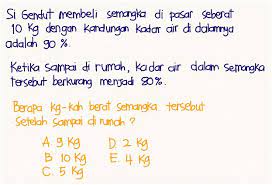 Si Gendut membeli semangka di pasar seberat
10 kg dengan kandungan kadar air di dalamnya
adalah 90 %.
Ketika sampai di rumah, kadar air dalam semangka
tersebut berkurang menjadi 80%.
Berapa kg-kah berat semangka tersebut
Setelah sampai di rumah ?
A. 9 kg D. 2 kg
B. 10 kg E. 4 kg
C. 5 kg